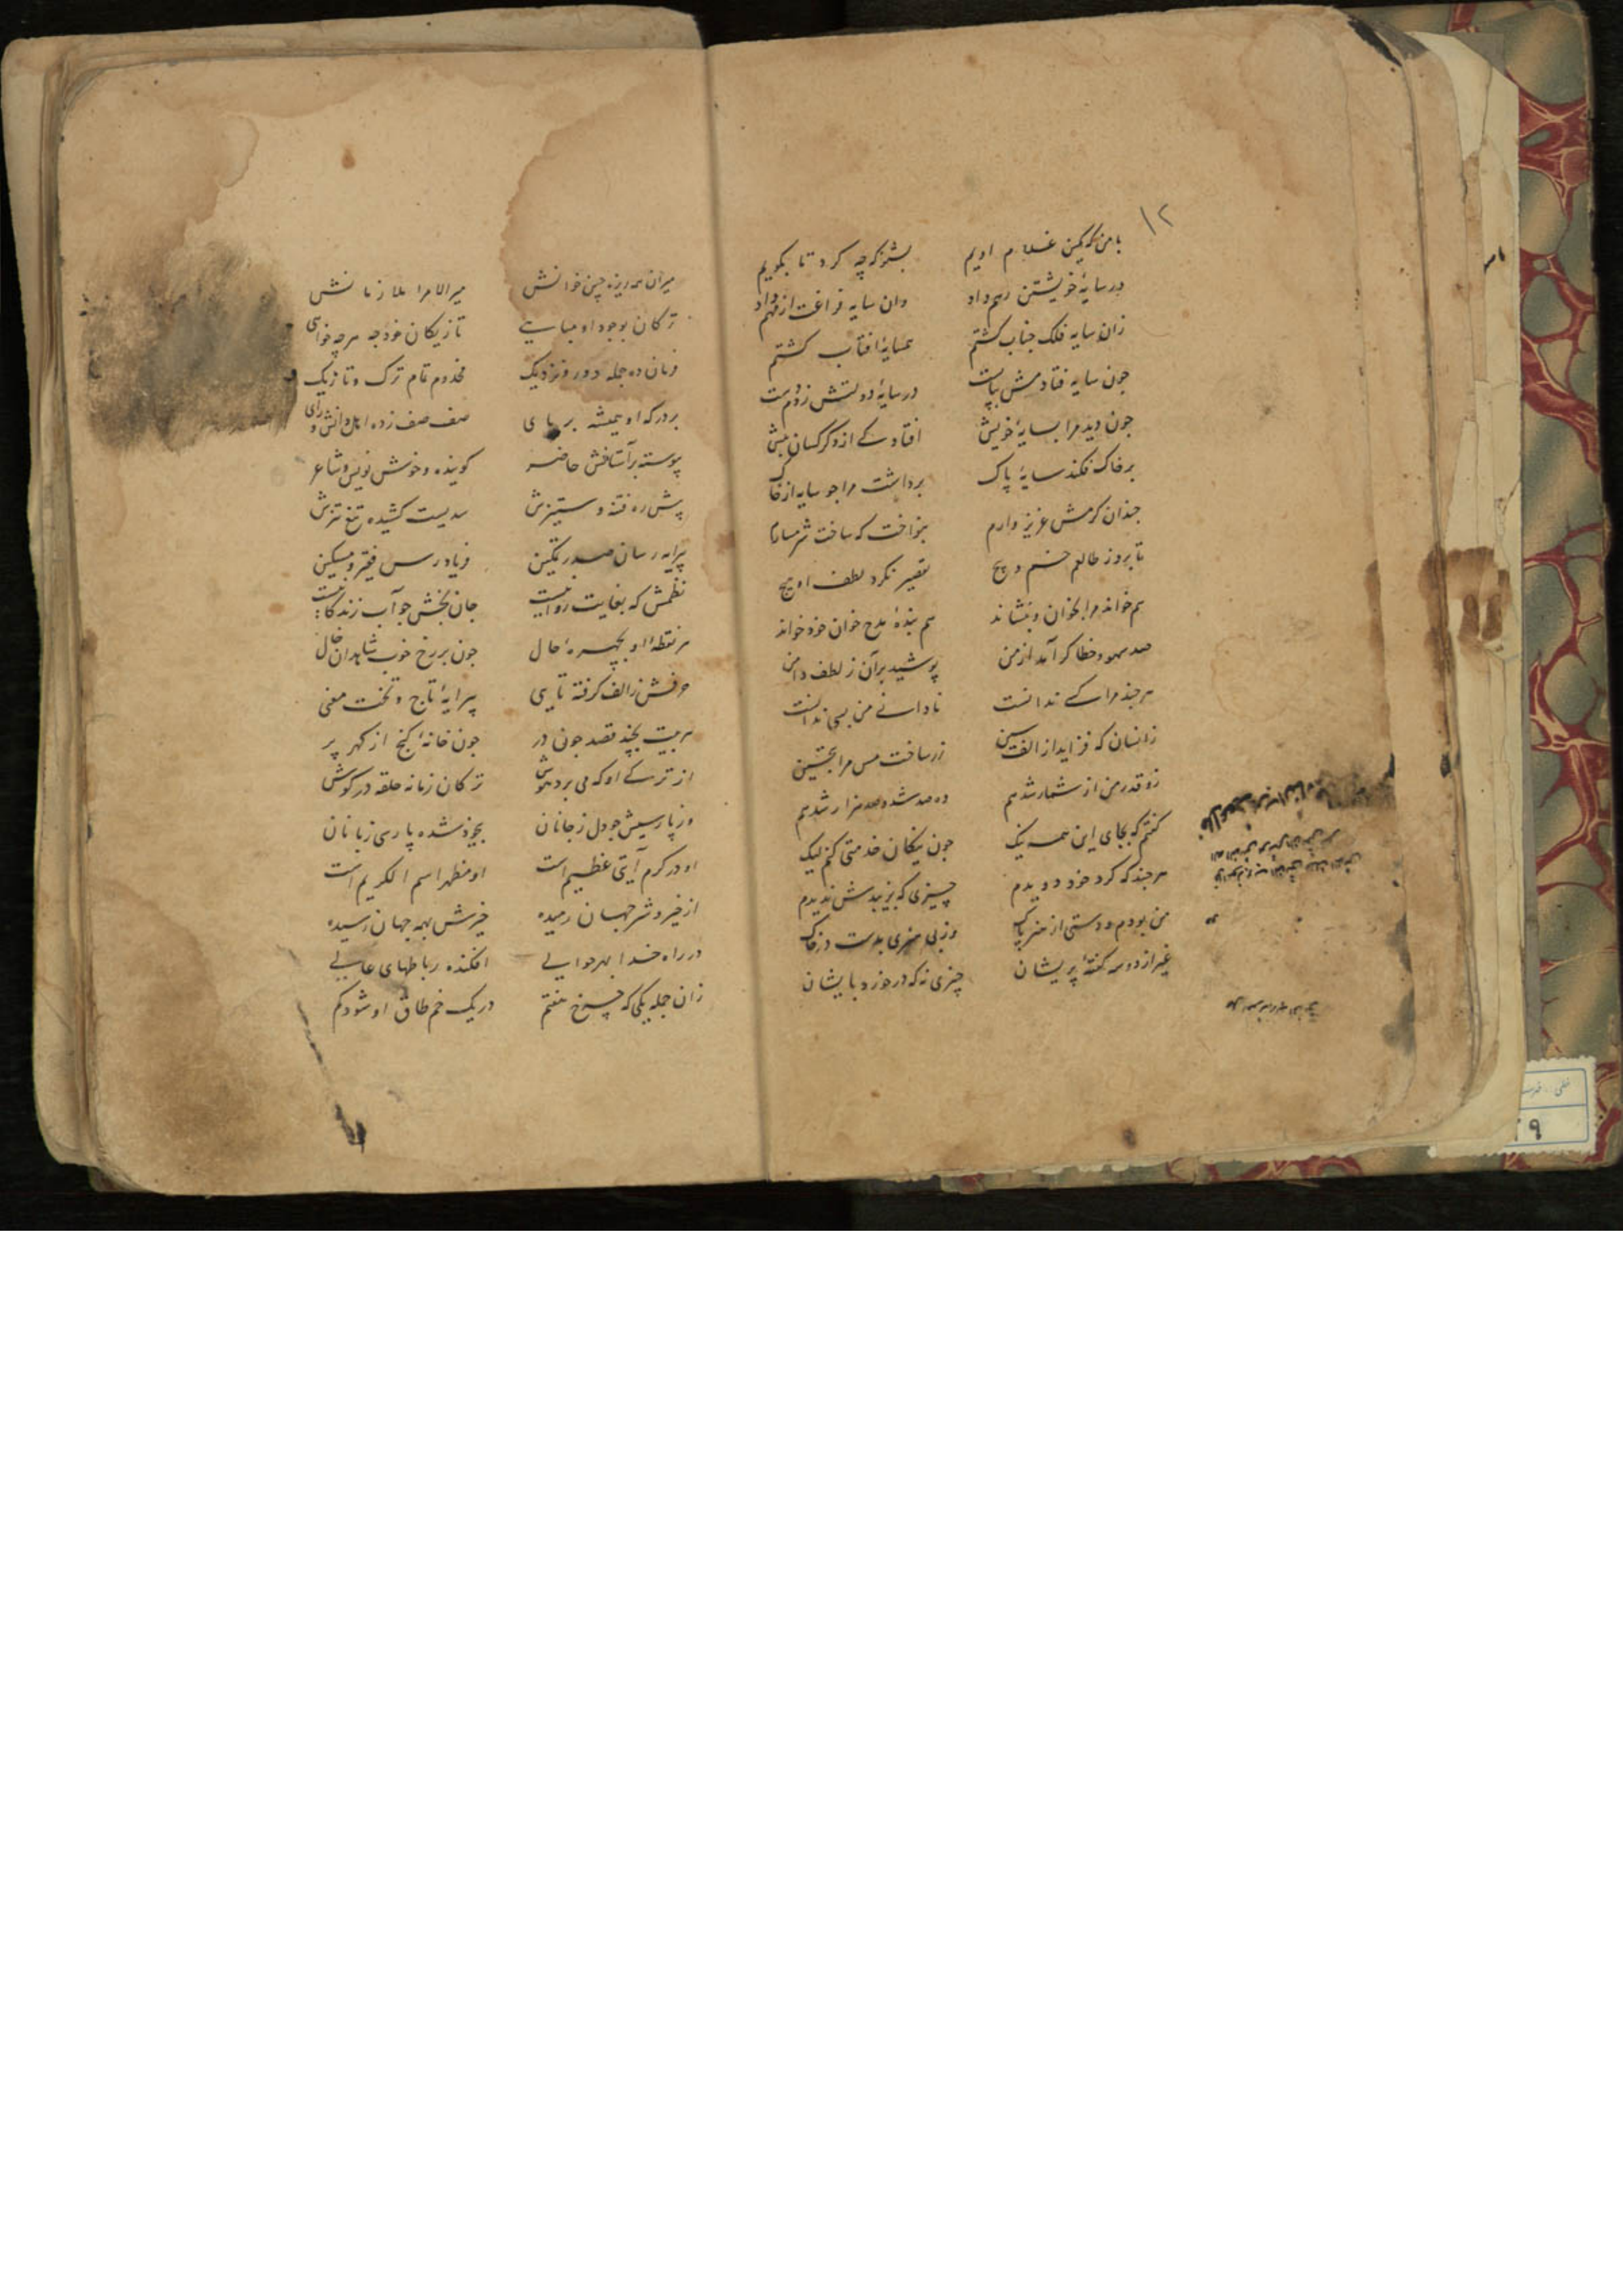 ۱۲
با من که کمین غلام اویم بشنو که چه کرد تا بکویم
در سایهٔ خویشتن رهم داد وان سایه فراغت از مهم داد
زان سایه فلک جناب کشتم همسایهٔ افتاب کشتم
جون سایه فتادمش بپا در سایهٔ دولتش زدم دست
جون دید مرا بسایهٔ خویش افتاد کے از دکر کسان پیش
بر خاک فکند سایهٔ پاک برداشت مرا جو سایه از خاک
جندان کرمش عزیز دارم بنواخت که ساخت شرمسارم
تا بروز طالعم خم و پیچ تقصیر نکرد لطف او هیچ
هم خواند مرا بخوان و بنشاند هم بندهٔ مدح خوان خود خواند
صد سهو و خطا کر آمد از من پوشید بر آن ز لطف دامن
هر جند مرا کسے ندانست نادانے من بسے ندانست
زانسان که فزاید از الف سین زر ساخت مس مرا بتحسین
زو قدر من از شمار شد هم ده صد شد و صد هزار شد هم
کفتم که بجای این همه نیک جون نیکان خدمتی کنم لیک
هر جند که کرد خود دویدم چیزی که بزیبدش ندیدم
من بودم و دستی از هنر پاک وز بی هنری بدست در خاک
غیر از دو سه کفتهٔ پریشان چیزی نه که در خورد بایشان
میران همه ریزه چین خوانش میر الامرا ملازمانش
ترکان بوجود او مباهی تازیکان خود جه هر چه خواهی
فرمان ده جمله دور و نزدیک مخدوم تمام ترک و تازیک
بر درکه او همیشه بر پای صف صف زده اهل دانش و رای
پیوسته بر آستانش حاضر کوینده و خوش نویس و شاعر
پیش ره فتنه و ستیزش سدیست کشیده تیغ تیزش
پیرایه رسان صدر تمکین فریاد رس فقیر و مسکین
نظمش که بغایت روانیست جان بخش جو آب زندکانیست
هر نقطهٔ او بچهرهٔ حال جون بر رخ خوب شاهدان خال
حرفش ز الف کرفته تا یی پیرایهٔ تاج و تخت معنی
هر بیت بچند قصد جون در جون خانهٔ کنج از کهر پر
از ترکے او که می برد هوش ترکان زمانه حلقه در کوش
وز پارسیش جو دل ز جانان بیخود شده پارسی زبانان
او در کرم آیتی عظیم است او مظهر اسم الکریم است
از خیر و شر جهان رمیده خیرش بهمه جهان رسیده
در راه خدا بهر حوالی افکنده رباطهای عالی
زان جمله یکی که چرخ هفتم در یک خم طاق او شود کم